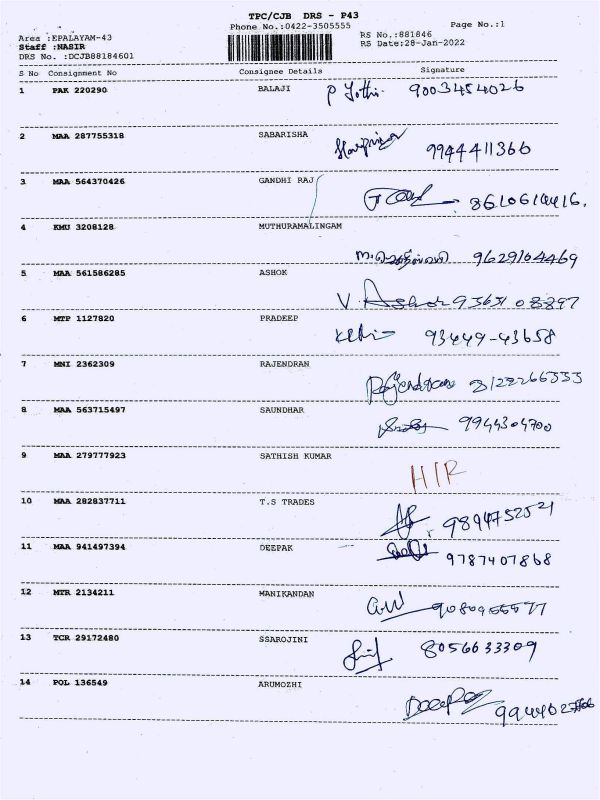 TPC/CJB DRS - P43
Phone No.:0422-3505555
Page No.:1
Area :EPALAYAM-43
RS No.:881846
Staff :NASIR
RS Date:28-Jan-2022
DRS No. :DCJB88184601
S No Consignment No Consignee Details Signature
1 PAK 220290 BALAJI P Jothi. 9003454026
2 MAA 287755318 SABARISHA 9944411366
3 MAA 564370426 GANDHI RAJ 8610614416.
4 KMU 3208128 MUTHURAMALINGAM 9629164469
5 MAA 561586285 ASHOK V. Ashok
6 MTP 1127820 PRADEEP 93449-43658
7 MNI 2362309 RAJENDRAN Rajendran
8 MAA 563715497 SAUNDHAR 9944304700
9 MAA 279777923 SATHISH KUMAR H/R
10 MAA 282837711 T.S TRADES 9894752521
11 MAA 941497394 DEEPAK 9787407868
12 MTR 2134211 MANIKANDAN
13 TCR 29172480 SSAROJINI 8056633309
14 POL 136549 ARUMOZHI Deepak